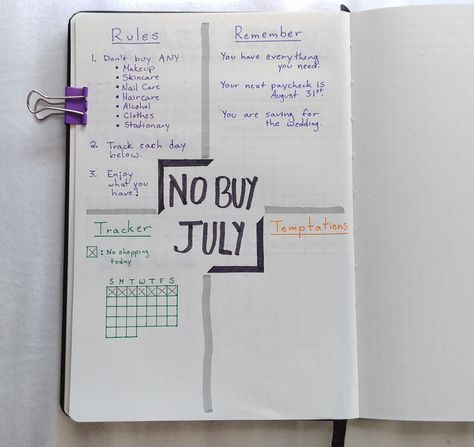 Rules
1. Don't buy ANY
• Makeup
• Skincare
• Nail Care
• Haircare
• Alcohol
• Clothes
• Stationary
2. Track each day
below.
3. Enjoy
what you
have!
Remember
You have everything
you need.
Your next paycheck is
August 31st.
You are saving for
the wedding.
NO BUY
JULY
Tracker
: No shopping
today
S M T W T F S
Temptations